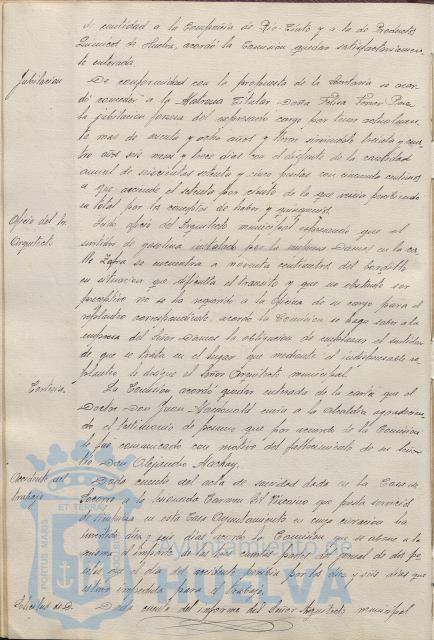 de cantidad a la Compañía de Rio-Tinto y a la de Productos
Químicos de Huelva, acordó la Comisión quedar satisfactoriamen-
te enterada.
Jubilación
De conformidad con la propuesta de la Secretaría se acor-
dó conceder a la Matrona Titular Doña Felisa
la jubilación forzosa del expresado cargo por tener actualmen-
te más de sesenta y ocho años y llevar sirviéndole treinta y cua-
tro años seis meses y trece días con el disfrute de la cantidad
anual de seiscientas setenta y cinco pesetas con cincuenta céntimos
a que asciende el setenta por ciento de lo que venía percibiendo
en total por los conceptos de haber y quinquenios.
Oficio del Sr.
Arquitecto
Leído oficio del Arquitecto municipal informando que el
surtidor de gasolina instalado por la empresa Damas en la ca-
lle Zafra se encuentra a noventa centímetros del bordillo
en situación que dificulta el tránsito y que no obstante ser
preceptivo no se ha requerido a la Oficina de su cargo para el
replanteo correspondiente, acordó la Comisión se haga saber a la
empresa del Señor Damas la obligación de emplazar el surtidor
de que se trata en el lugar que mediante el indispensable re-
planteo le designe el Señor Arquitecto municipal.
Cortesía
La Comisión acordó quedar enterada de la carta que el
Doctor Don Juan envía a la Alcaldía agradecien-
do el testimonio de pésame que por acuerdo de la Comisión
le fue comunicado con motivo del fallecimiento de su
Don Alejandro
Accidente del
trabajo
Dada cuenta del acta de sucesos dada en la Casa de
Socorro a la Carmen Gil Vizcaíno que presta servicio
de limpieza en esta Casa Ayuntamiento en cuya curación ha
invertido diez y seis días acordó la Comisión que se abone a la
misma el importe de las tres cuartas partes del jornal de dos pe-
setas que el día del accidente percibía por los diez y seis días que
estuvo impedida para el trabajo.
Dada cuenta del informe del Señor Arquitecto municipal
PORTUS MARIS
ET TERRAE
Ayuntamiento de
HUELVA